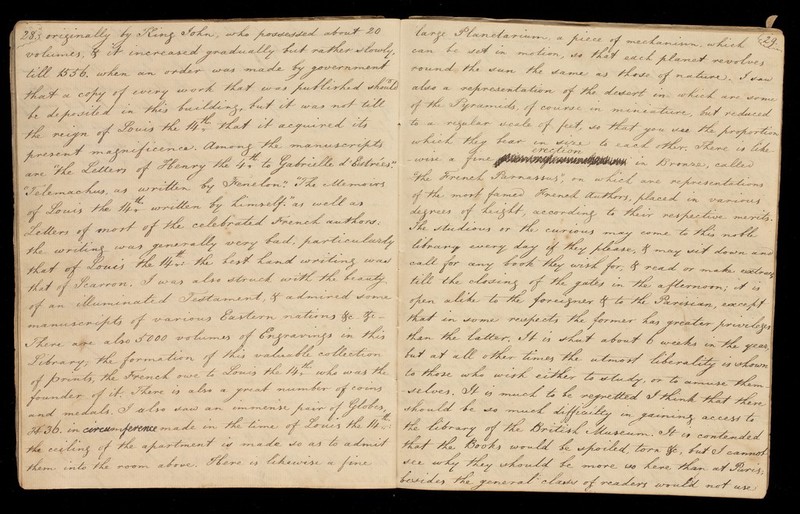 28.
originally by King John, who possessed about 20
volumes, & it increased gradually but rather slowly,
till 1556, when an order was made by government
that a copy of every work that was published should
be deposited in this building, but it was not till
the reign of Louis the 14th that it acquired its
present magnificence. Among the manuscripts
are "the Letters of Henry the 4th to Gabrielle d'Estrées."
"Telemachus, as written by Fenelon." "The Memoirs
of Louis the 14th written by himself" as well as
Letters of most of the celebrated French authors.
the writing was generally very bad, particularly
that of Louis the 14th, the best hand writing was
that of Scarron. I was also struck with the beauty
of an illuminated Testament, & admired some
manuscripts of various Eastern nations &c. &c.
There are also 5000 volumes of Engravings in this
Library; the formation of this valuable collection
of prints, the French owe to Louis the 14th who was the
founder of it. There is also a great number of coins
and medals. I also saw an immense pair of Globes,
36. in circumference made in the time of Louis the 14th
the ceiling of the apartment is made so as to admit
them into the room above. There is likewise a fine
29.
large Planetarium, a piece of mechanism, which
can be set in motion, so that each planet revolves
round the sun the same as those of nature. I saw
also a representation of the desert in which are some
of the Pyramids, of course in miniature, but reduced
to a regular scale of feet, so that you see the proportion
which they bear in size to each other. There is like-
wise a fine erection in Bronze, called
"the French Parnassus", on which are representations
of the most famed French Authors, placed in various
degrees of height, according to their respective merits.
The studious or the curious may come to this noble
library every day if they please, & may sit down and
call for any book they wish for, & read or make extracts
till the closing of the gates in the afternoon; it is
open alike to the foreigner & to the Parisian, except
that in some respects the former has greater privileges
than the latter. It is shut about 6 weeks in the year,
but at all other times the utmost liberality is shown
to those who wish either to study, or to amuse them-
selves. It is much to be regretted I think that there
should be so much difficulty in gaining access to
the library of the British Museum. It is contended
that the Books would be spoiled, torn &c, but I cannot
see why they should be more so here than at Paris;
besides the general class of readers would not use